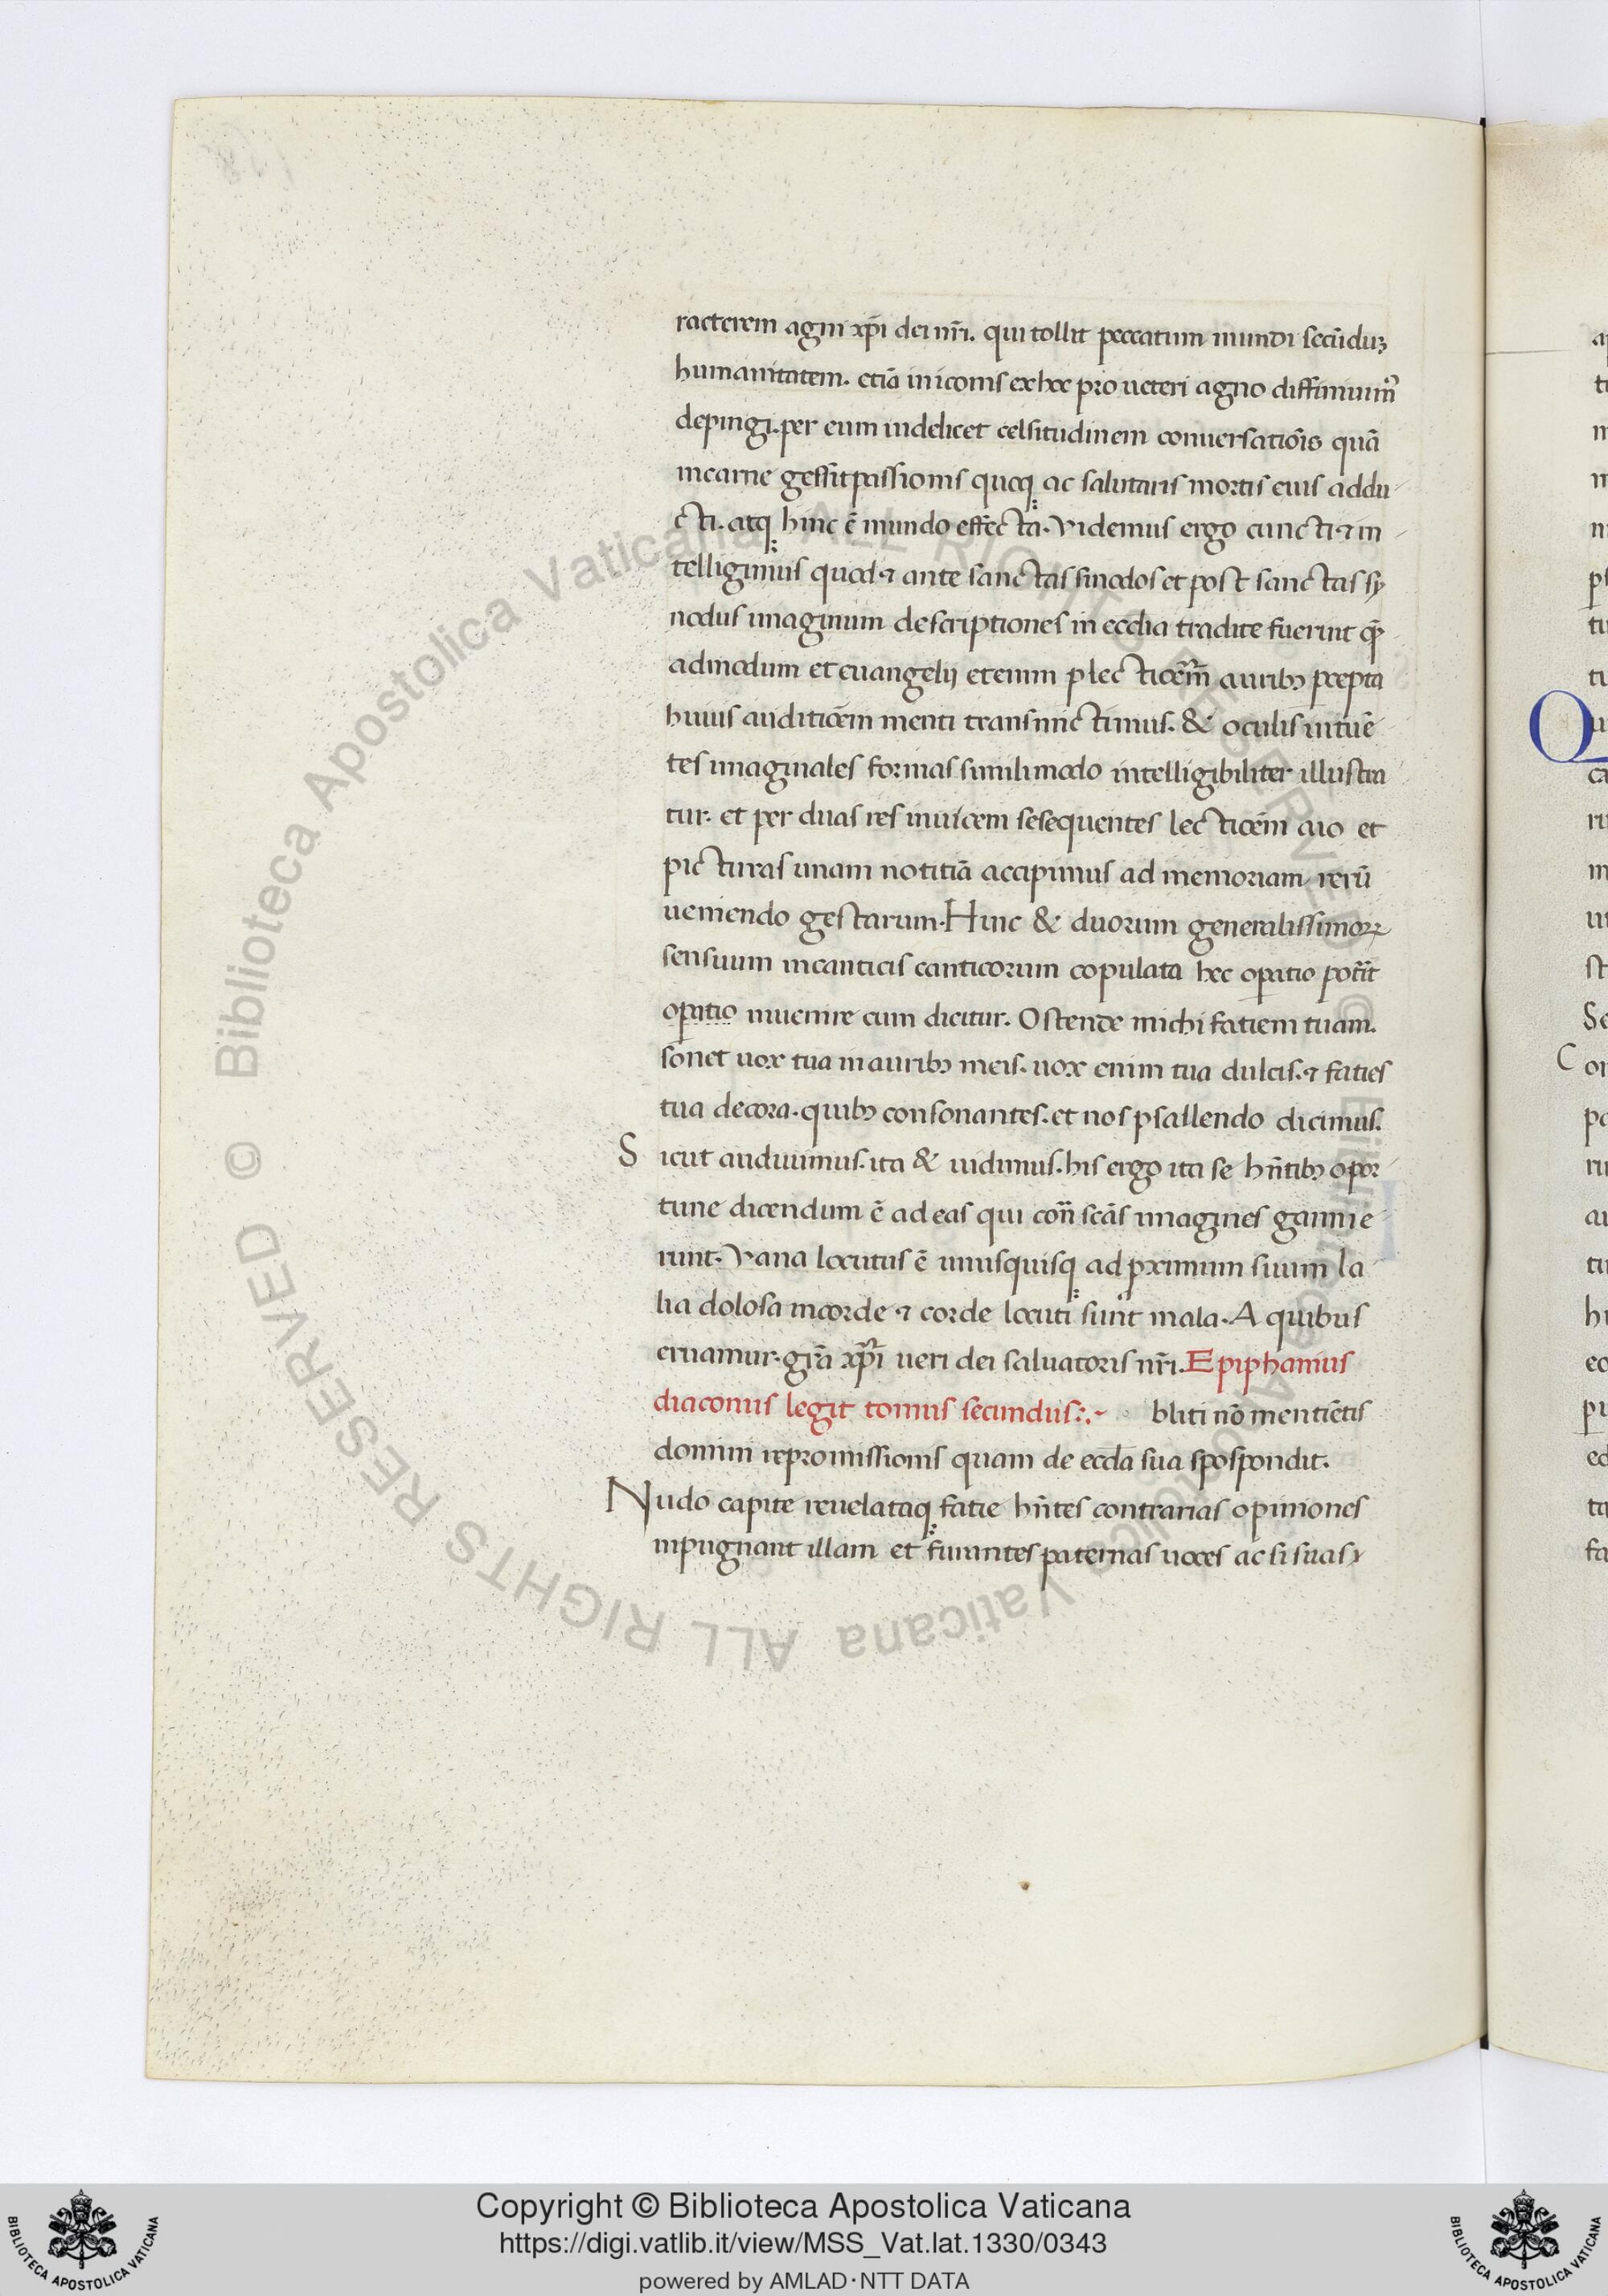 racterem agni xp̄i dei nr̄i. qui tollit peccatum mundi secūduꝫ
humanitatem. etiā in iconis ex hoc pro ueteri agno diffinimꝰ
depingi. per eum uidelicet celsitudinem conuersatiōis quā
in carne gessit passionis quoqꝫ ac salutaris mortis eius addu
cti. atqꝫ hinc ē mundo effecta. Videmus ergo cuncti ⁊ in
telligimus quod ⁊ ante sanctas sinodos et post sanctas sy
nodus imaginum descriptiones in ecclīa tradite fuerint quē
admodum et euangelij etenim ꝑ lectioem̄ auribꝫ p̄cepta
huius auditioēm menti transmictimus. & oculis intuē
tes imaginales formas simili modo intelligibiliter illustra
tur. et per duas res inuicem sesequentes lectioēm aio et
picturas unam notitiā accipimus ad memoriam rerū
ueniendo gestarum. Hinc & duorum generalissimoꝝ
sensuum in canticis canticorum copulata hec oꝑatio potīt
oꝑatio inuenire cum dicitur. Ostende michi fatiem tuam.
sonet uox tua in auribꝫ meis. uox enim tua dulcis. ⁊ faties
tua decora. quibꝫ consonantes. et nos psallendo dicimus.
Sicut audiuimus. ita & uidimus. his ergo ita se hn̄tibꝫ opor
tune dicendum ē ad eas qui con̄ scās imagines gannie
runt. Vana locutus ē unusquisqꝫ ad ꝓximum suum la
lia dolosa in corde ⁊ corde locuti sunt mala. A quibus
eruamur. grā xp̄i ueri dei saluatoris nr̄i. Epiphanius
diaconus legit tomus secundus:.~ bliti nō mentiētis
domini repromissionis quam de eccla sua spospondit.
Nudo capite reuelataqꝫ fatie hn̄tes contrarias opiniones
inpugnant illam et furantes paternas uoces ac si suas
Copyright © Biblioteca Apostolica Vaticana
https://digi.vatlib.it/view/MSS_Vat.lat.1330/0343
powered by AMLAD·NTT DATA
BIBLIOTECA APOSTOLICA VATICANA
BIBLIOTECA APOSTOLICA VATICANA
© Biblioteca Apostolica Vaticana ALL RIGHTS RESERVED © Biblioteca Apostolica Vaticana ALL RIGHTS RESERVED